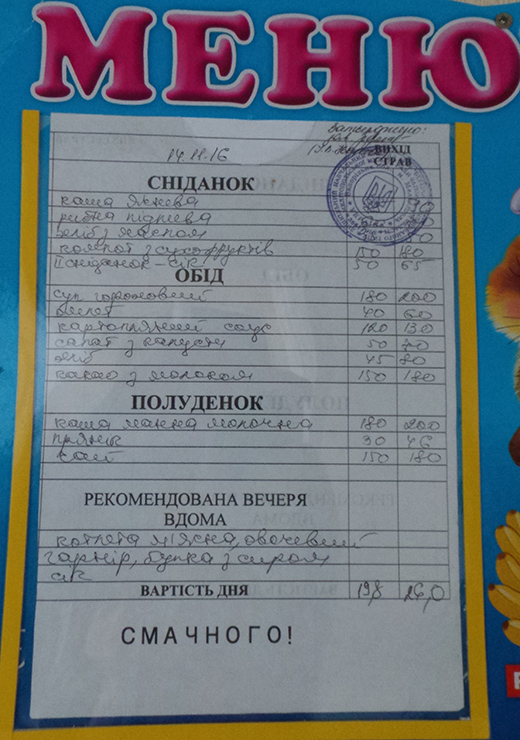 МЕНЮ
Затверджую:
14.11.16
ВИХІД СТРАВ
СНІДАНОК
каша ячнева 90
рибка
хліб з маслом
компот з сухофруктів 150 180
ІІ сніданок - сік 50 65
ОБІД
суп гороховий 180 200
40 60
картопляний соус 120 130
салат з капусти 50 70
хліб 45 80
какао з молоком 150 180
ПОЛУДЕНОК
каша манна молочна 180 200
пряник 30 46
чай 150 180
РЕКОМЕНДОВАНА ВЕЧЕРЯ
ВДОМА
котлета м'ясна, овочевий
гарнір, булка з сиром
сік
ВАРТІСТЬ ДНЯ 19,8 26,0
СМАЧНОГО!